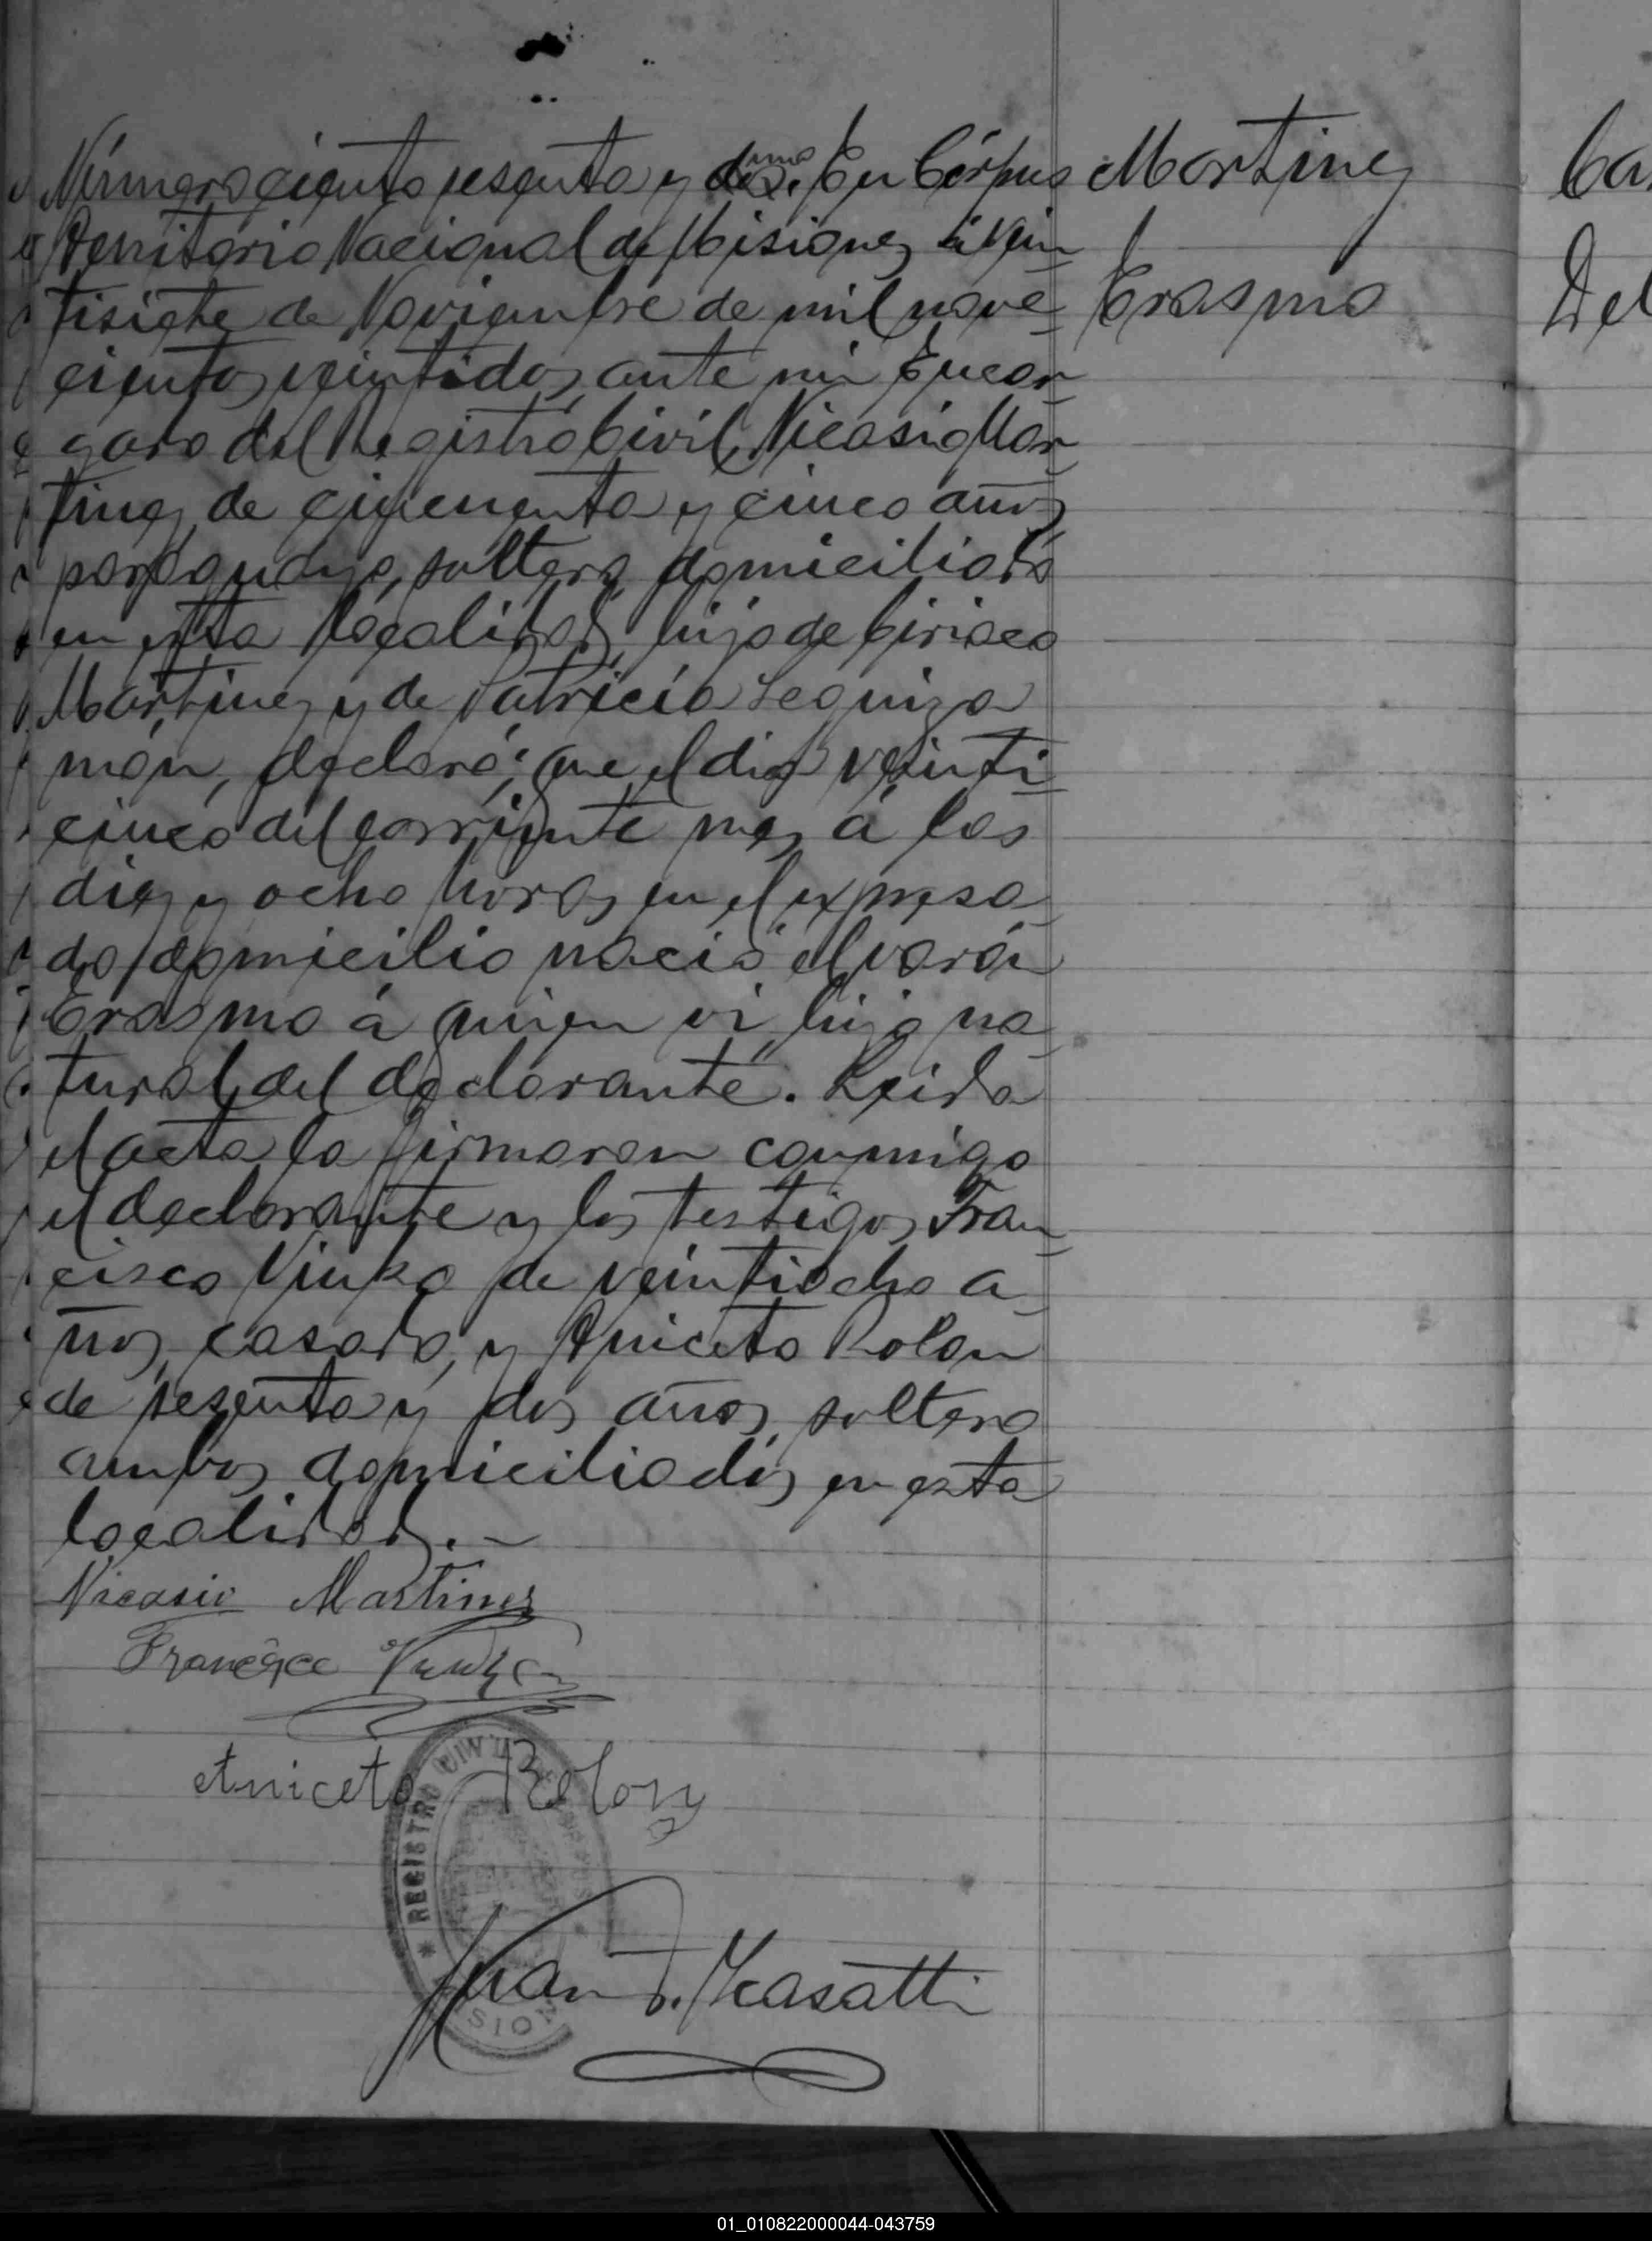 Número ciento sesenta y dos. uno En Córpus
Territorio Nacional de Misiones á vein
tisiete de Noviembre de mil nove
cientos veintidos, ante mi Encar
gado del Registro Civil, Nicasio Mar
tinez de cincuenta y cinco años,
paraguayo, soltero, domiciliado
en esta localidad, hijo de Ciriaco
Martinez y de Patricia Leguiza
món, declaró: Que el dia veinti
cinco del corriente mes á las
diez y ocho horas en el expresa
do domicilio nació el varón
Erasmo á quien vi, hijo na
tural del declarante. Leida
el acta la firmaron conmigo
el declarante y los testigos Fran
cisco Vinka de veintiocho a
ños, casado, y Aniceto Rolon
de sesenta y dos años, soltero
ambos domiciliados en esta
localidad.
Nicasio Martinez
Aniceto Rolon
REGISTRO CIVIL
Juan
Martinez
Erasmo
Ca
Del
01_010822000044-043759